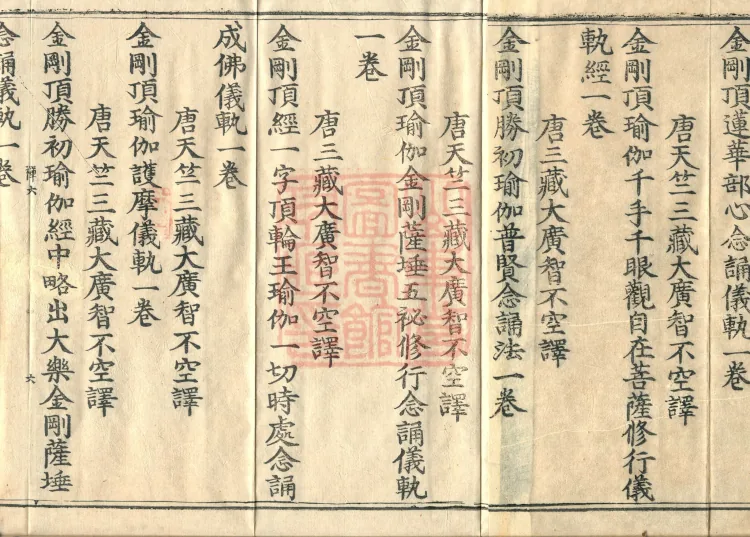 金剛頂蓮華部心念誦儀軌一卷
唐天竺三藏大廣智不空譯
金剛頂瑜伽千手千眼觀自在菩薩修行儀
軌經一卷
唐三藏大廣智不空譯
金剛頂勝初瑜伽普賢念誦法一卷
唐天竺三藏大廣智不空譯
金剛頂瑜伽金剛薩埵五祕修行念誦儀軌
一卷
唐三藏大廣智不空譯
金剛頂經一字頂輪王瑜伽一切時處念誦
成佛儀軌一卷
唐天竺三藏大廣智不空譯
金剛頂瑜伽護摩儀軌一卷
唐天竺三藏大廣智不空譯
金剛頂勝初瑜伽經中略出大樂金剛薩埵
六
念誦儀軌一卷